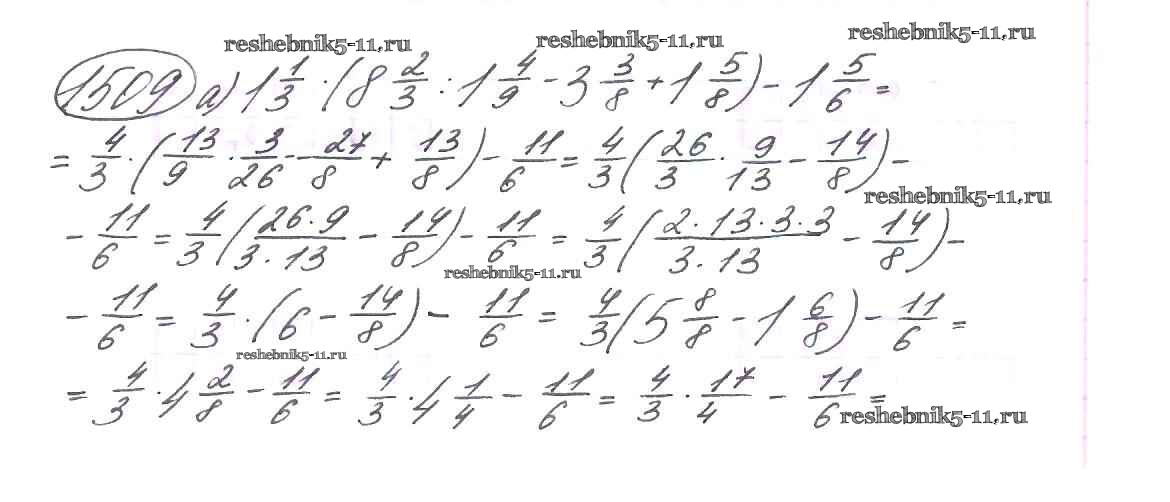 reshebnik5-11.ru reshebnik5-11.ru reshebnik5-11.ru
1509 а) 1 1/3 · (8 2/3 : 1 4/9 - 3 3/8 + 1 5/8) - 1 5/6 =
= 4/3 · (13/9 · 3/26 - 27/8 + 13/8) - 11/6 = 4/3 (26/3 · 9/13 - 14/8) -
reshebnik5-11.ru
- 11/6 = 4/3 (26·9/3·13 - 14/8) - 11/6 = 4/3 (2·13·3·3/3·13 - 14/8) -
reshebnik5-11.ru
- 11/6 = 4/3 · (6 - 14/8) - 11/6 = 4/3 (5 8/8 - 1 6/8) - 11/6 =
reshebnik5-11.ru
= 4/3 · 4 2/8 - 11/6 = 4/3 · 4 1/4 - 11/6 = 4/3 · 17/4 - 11/6 =
reshebnik5-11.ru